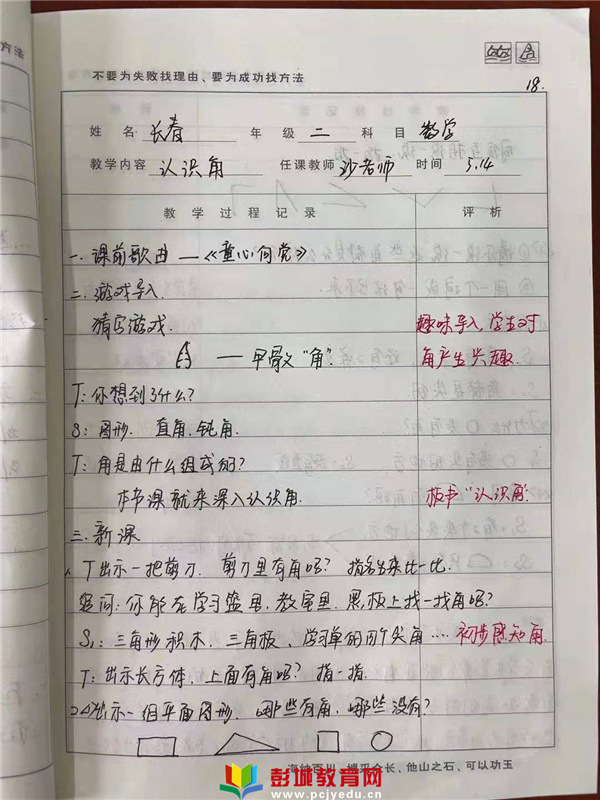 方法
不要为失败找理由、要为成功找方法
18.
姓名 长春 年级 二 科目 数学
教学内容 认识角 任课教师 沙老师 时间 5.14
教学过程记录 评析
一.课前歌曲—《童心向党》
二.游戏导入
猜字游戏. 趣味导入,学生对
——甲骨文"角". 角产生兴趣.
T:你想到了什么?
S:图形. 直角.钝角.
T:角是由什么组成的?
本节课就来深入认识角. 板书"认识角".
三.新课
1.T出示一把剪刀. 剪刀里有角吗? 指名出来比一比.
追问:你能在学习篮里,教室里.黑板上找一找角吗?
S₁:三角形积木.三角板、学习单的两个尖角…. 初步感知角.
T:出示长方体.上面有角吗? 指一指.
2.出示一组平面图形.哪些有角.哪些没有?
海纳百川、博采众长、他山之石、可以功玉
彭城教育网
www.pcjyedu.cn